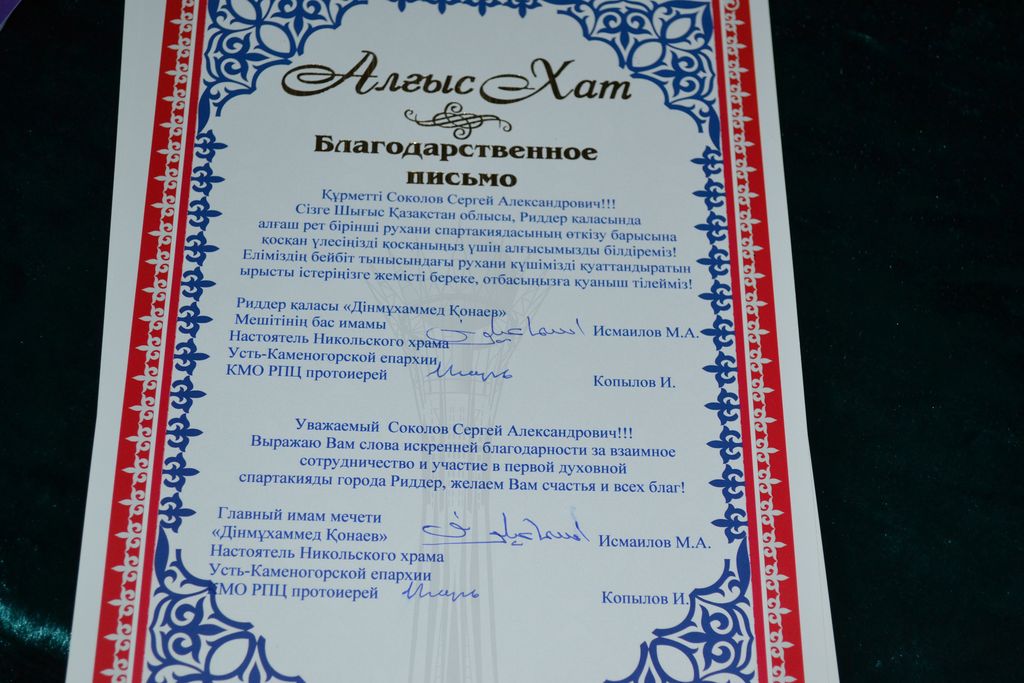 Алғыс Хат
Благодарственное
письмо
Құрметті Соколов Сергей Александрович!!!
Сізге Шығыс Қазақстан облысы, Риддер қаласында
алғаш рет бірінші рухани спартакиядасының өткізу барысына
қосқан үлесіңізді қосқаныңыз үшін алғысымызды білдіреміз!
Еліміздің бейбіт тынысындағы рухани күшімізді қуаттандыратын
ырысты істеріңізге жемісті береке, отбасыңызға қуаныш тілейміз!
Риддер қаласы «Дінмұхаммед Қонаев»
Мешітінің бас имамы Исмаилов М.А.
Настоятель Никольского храма
Усть-Каменогорской епархии
КМО РПЦ протоиерей Копылов И.
Уважаемый Соколов Сергей Александрович!!!
Выражаю Вам слова искренней благодарности за взаимное
сотрудничество и участие в первой духовной
спартакияды города Риддер, желаем Вам счастья и всех благ!
Главный имам мечети
«Дінмұхаммед Қонаев» Исмаилов М.А.
Настоятель Никольского храма
Усть-Каменогорской епархии
КМО РПЦ протоиерей Копылов И.